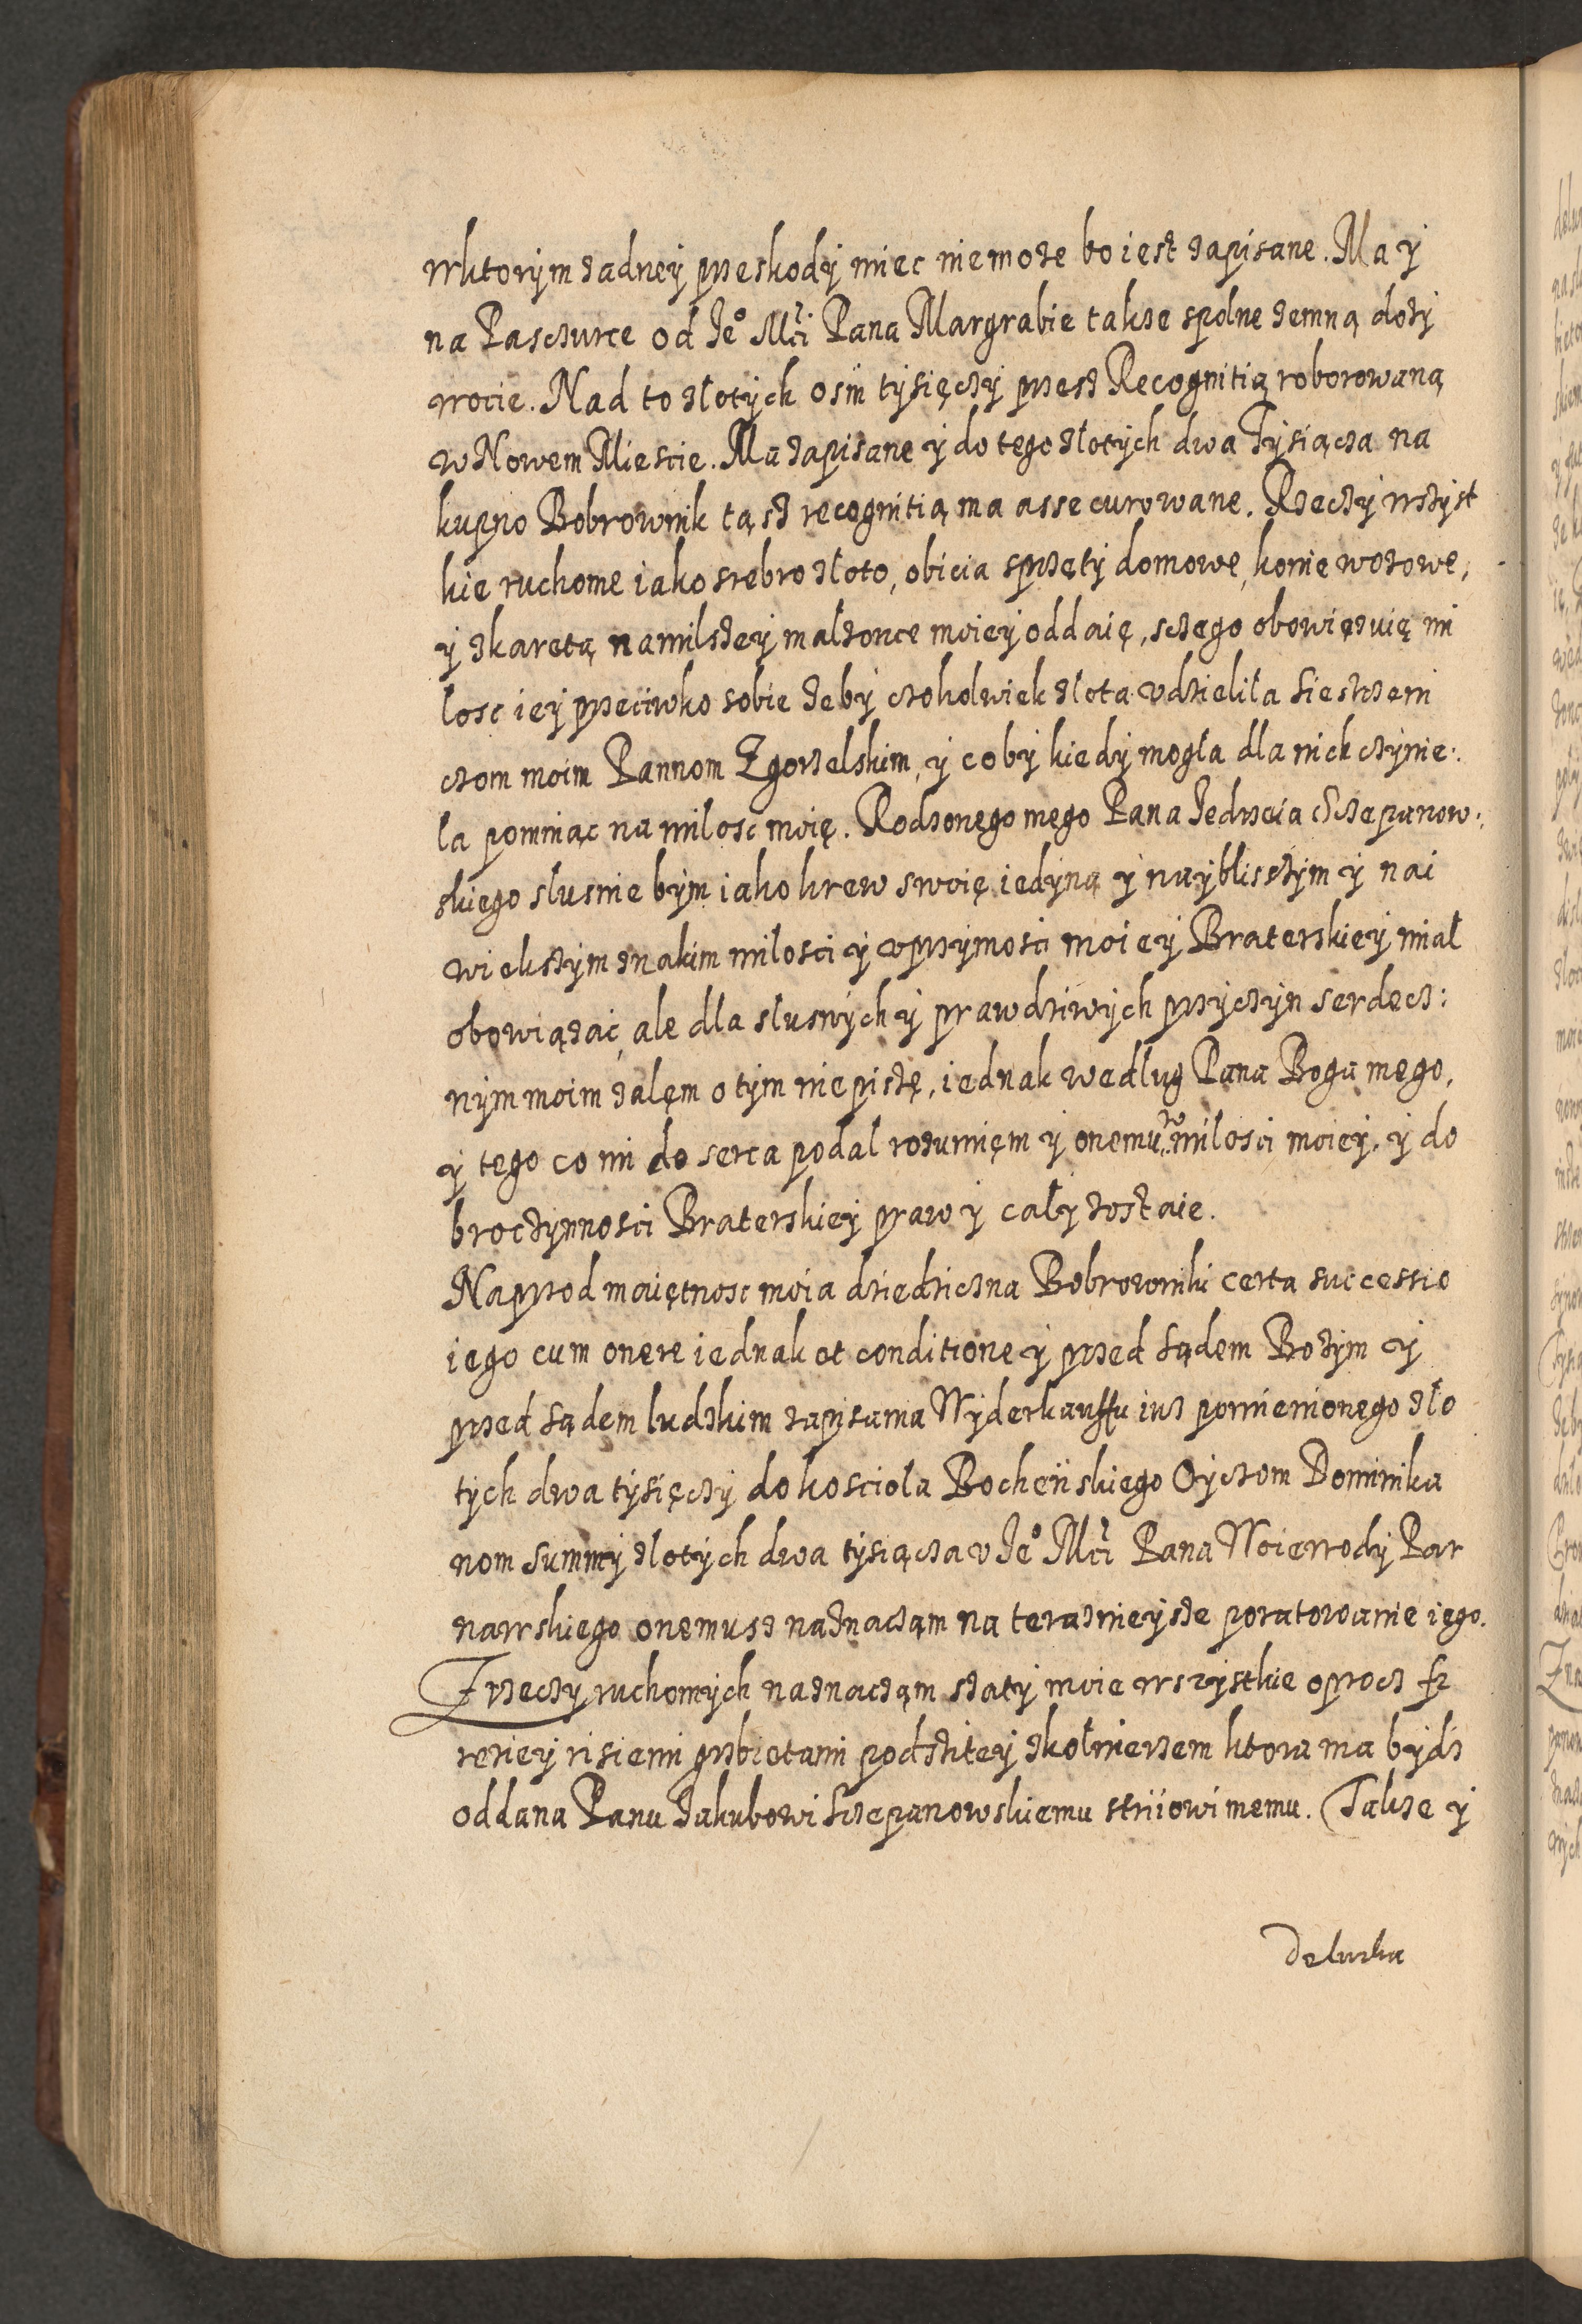 wktorym zadney przeskody miec niemoze bo iest zapisane. Ma y
na Pasczurce od Jeº Mći Pana Margrabie takze spolne zemną dozy
wocie. Nad to zlotych osm tysięczy przez Recognitią roborowaną
w Nowem Miescie. Ma zapisane y do tego zlotych dwa Tysiącza na
kupno Bobrownik tą sz recognitią ma assecurowane. Rzeczy wszyst
kie ruchome iako srebro zloto, obicia sprzęty domowe, konie wozowe,
y zkaretą namilszey malzonce moiey oddaię, sczego obowięzuię mi
losc iey przeciwko sobie zeby czokolwiek zlota udzielila siestrzeni
czom moim Pannom Zgorzelskim, y coby kiedy mogla dla nich czynie:
la pomniąc na milosc moię. Rodzonego mego Pana Jedrzeia Sczepanow:
skiego slusnie bym iako krew swoię iedyną y nayblisszym y nai
wiekszym znakim milosci y uprzymosci moiey Braterskiey mial
obowiązac, ale dla slusnych y prawdziwych przyczyn serdecz:
nym moim zalęm o tym nie piszę, iednak wedlug Pana Boga mego,
y tego co mi do serca podal rozumięm y onemu w milosci moiey, y do
broczynnosci Braterskiey praw y caly zostaie.
Naprzod maiętnosc moia dziedziczna Bobrowniki certa successio
iego cum onere iednak et conditione y przed sądem Bozym y
przed sądem ludzkim zapisania Wyderkauffu iusz pomienionego zlo
tych dwa tysięczy do kosciola Bocheńskiego Oyczom Dominika
nom summy zlotych dwa tysiącza u Jeº Mći Pana Woiewody Par
nawskiego onemusz naznaczam na terazmieysze poratowanie iego.
Z rzeczy ruchomych naznaczam szaty moie wszystkie oprocz fe
reziey risiemi grzbietami podszitey zkolnierzem ktora ma bydz
oddana Panu Jakubowi Sczepanowskiemu striiowi memu. Takze y
Delurka